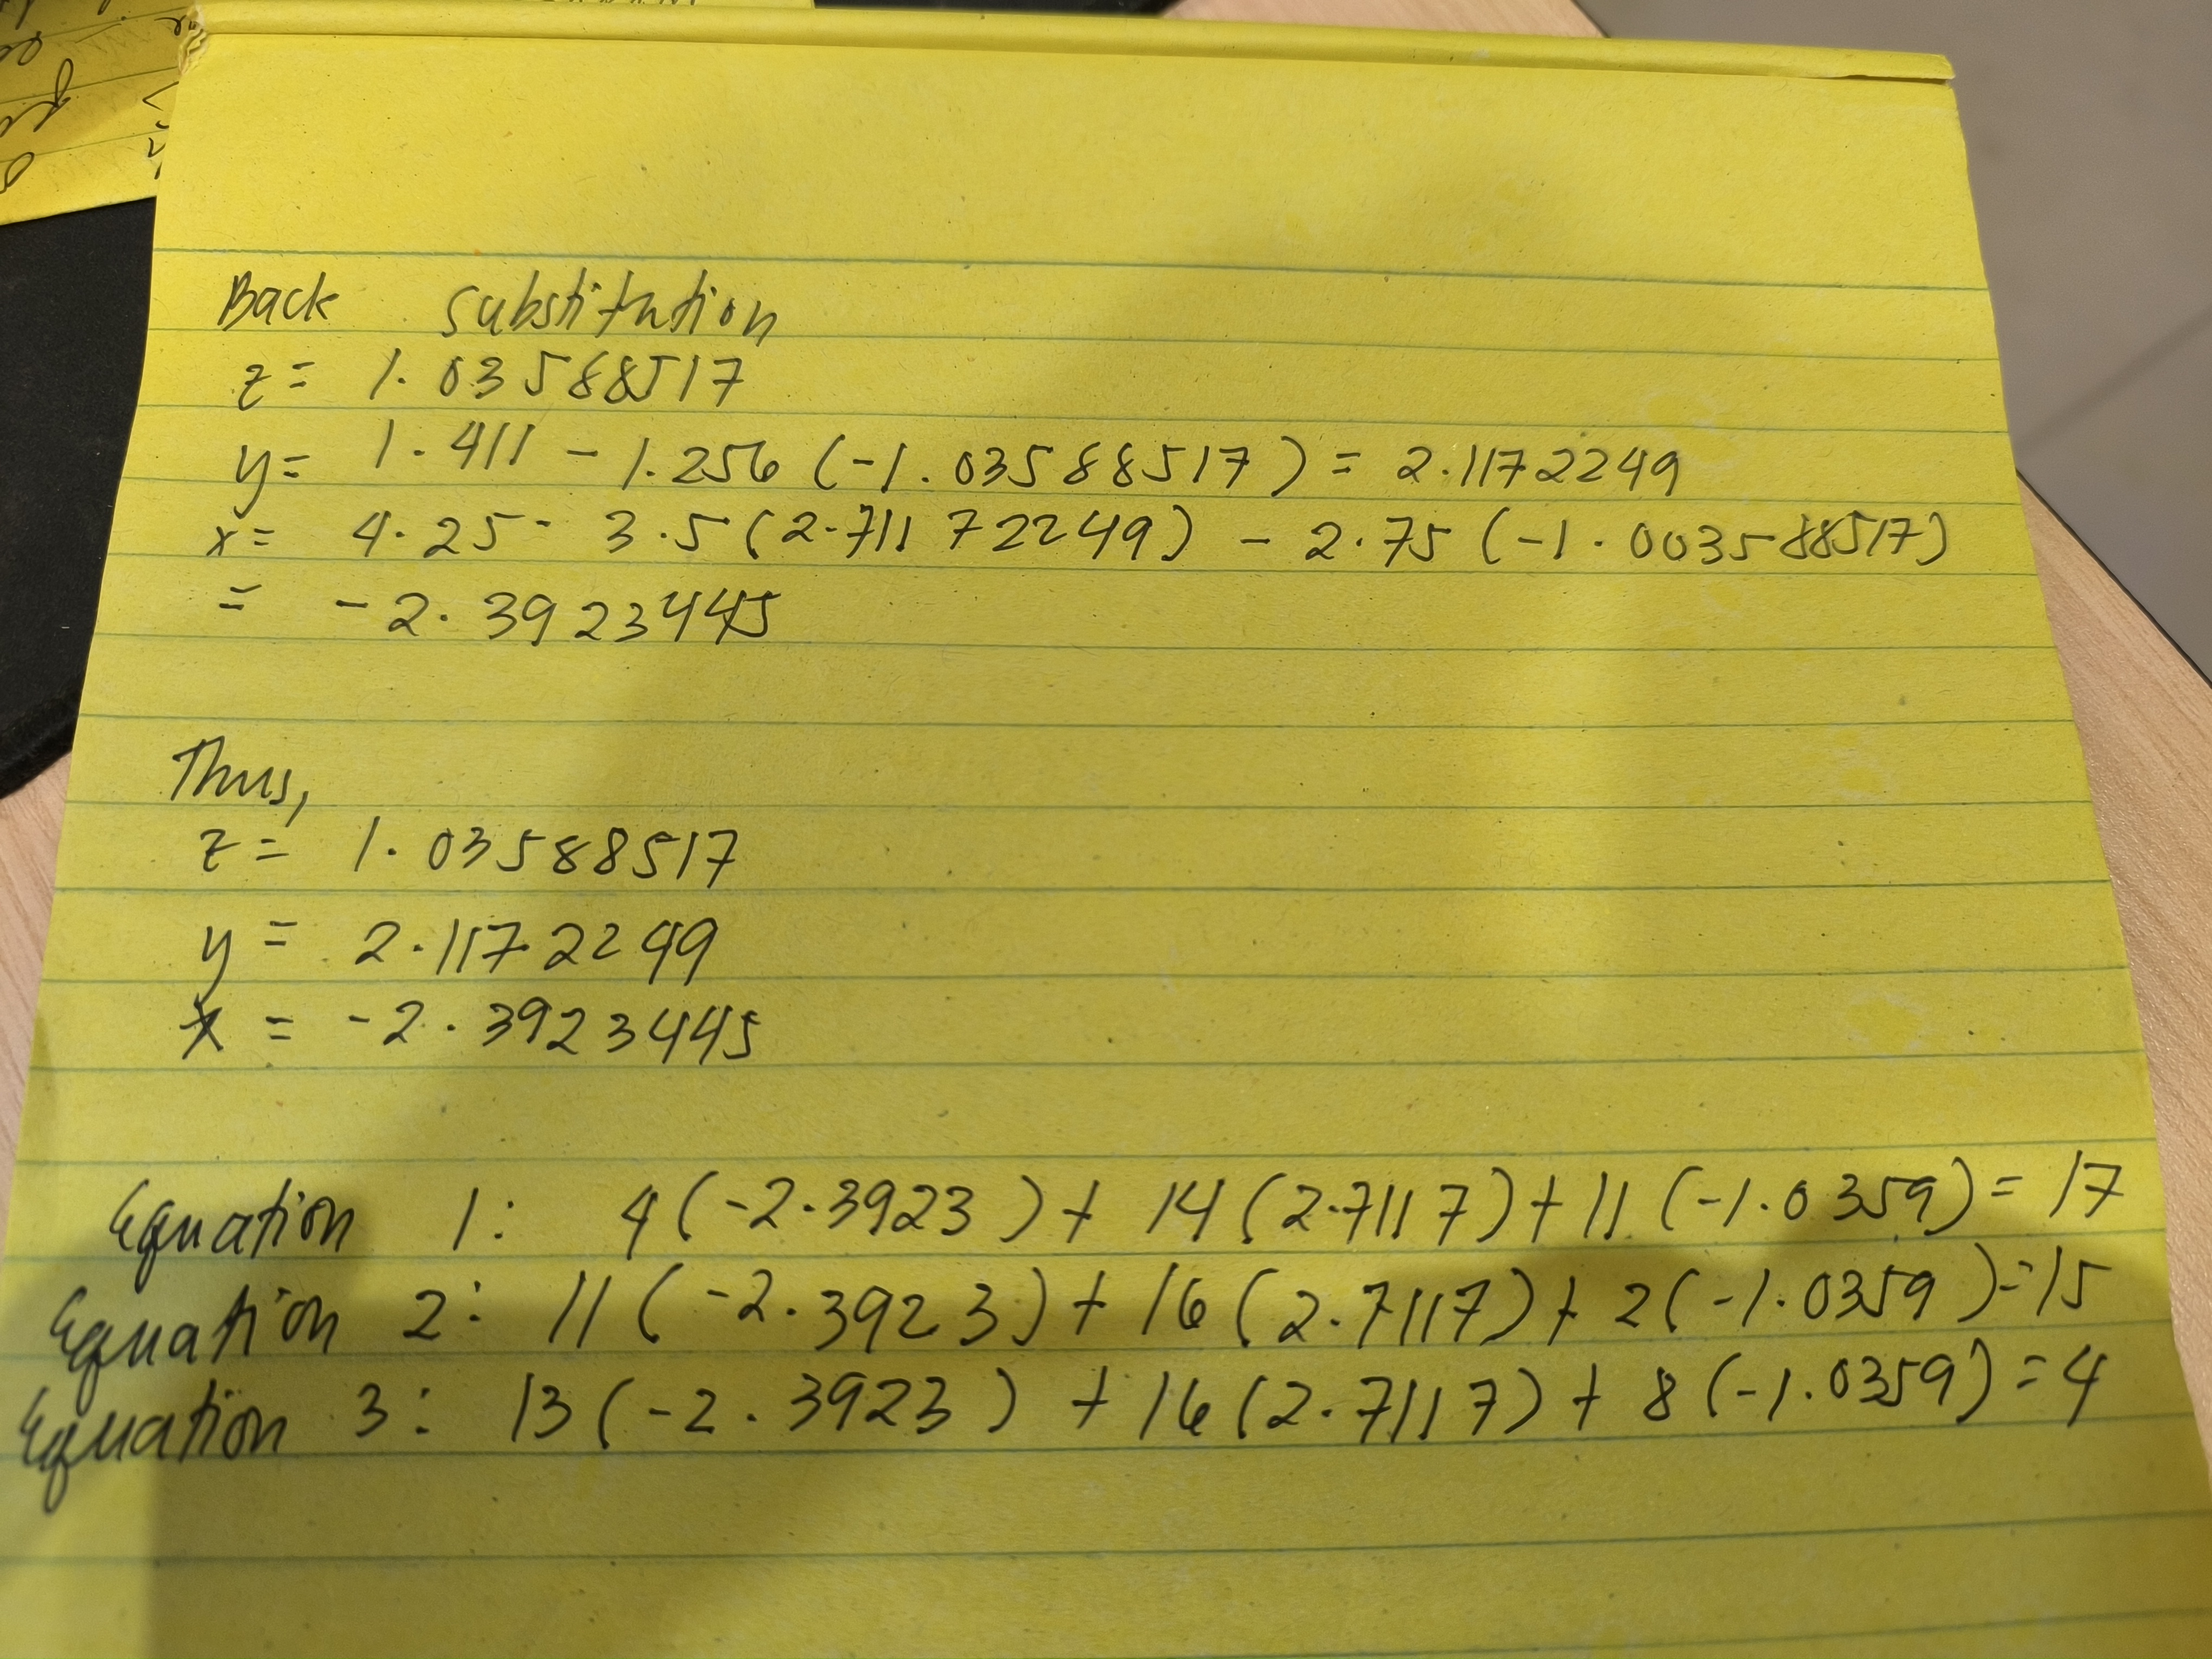 Back substitution
z = 1.03588517
y = 1.411 - 1.256 (-1.03588517) = 2.1172249
x = 4.25 - 3.5 (2.71172249) - 2.75 (-1.003588517)
= -2.3923445
Thus,
z = 1.03588517
y = 2.1172249
x = -2.3923445
Equation 1: 4(-2.3923) + 14(2.7117) + 11(-1.0359) = 17
Equation 2: 11(-2.3923) + 16(2.7117) + 2(-1.0359) = 15
Equation 3: 13(-2.3923) + 16(2.7117) + 8(-1.0359) = 4